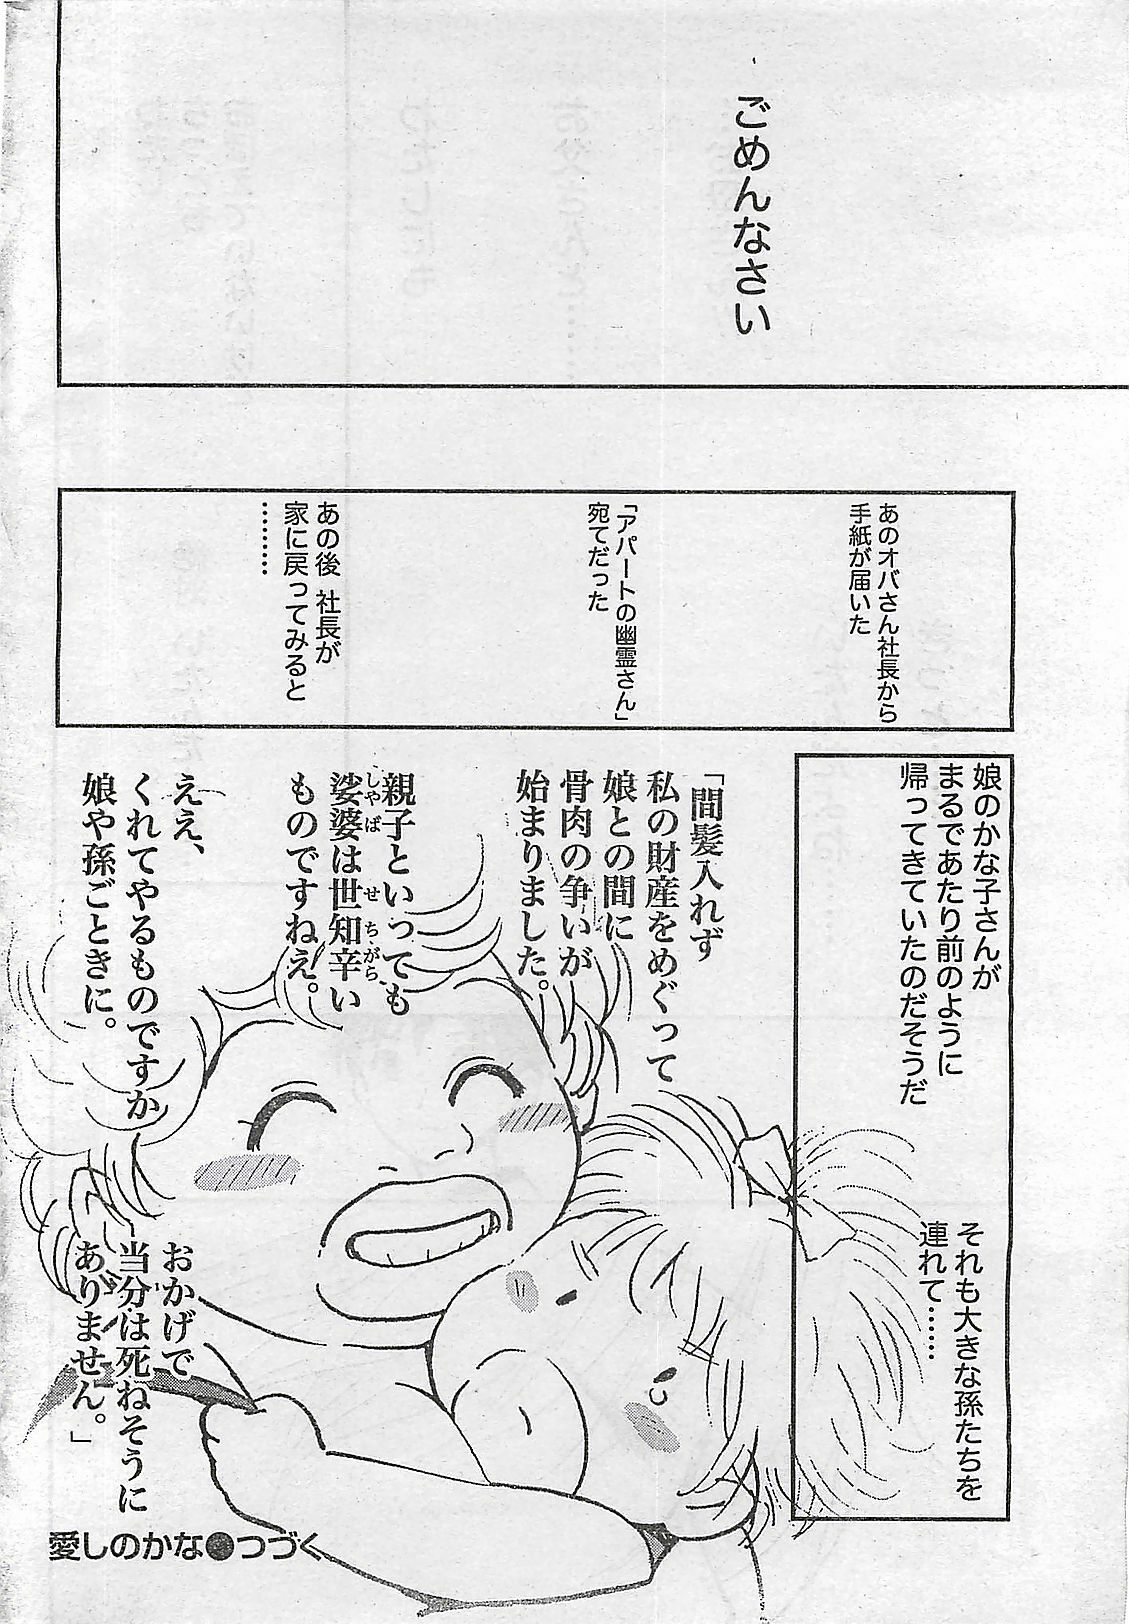 ごめんなさい
あのオバさん社長から
手紙が届いた
「アパートの幽霊さん」
宛てだった
あの後 社長が
家に戻ってみると
………
娘のかな子さんが
まるであたり前のように
帰ってきていたのだそうだ
それも大きな孫たちを
連れて……
「間髪入れず
私の財産をめぐって
娘との間に
骨肉の争いが
始まりました。
親子といっても
娑婆は世知辛い
しゃば せちがら
ものですねえ。
ええ、
くれてやるものですか
娘や孫ごときに。
おかげで
当分は死ねそうに
ありません。」
愛しのかな●つづく